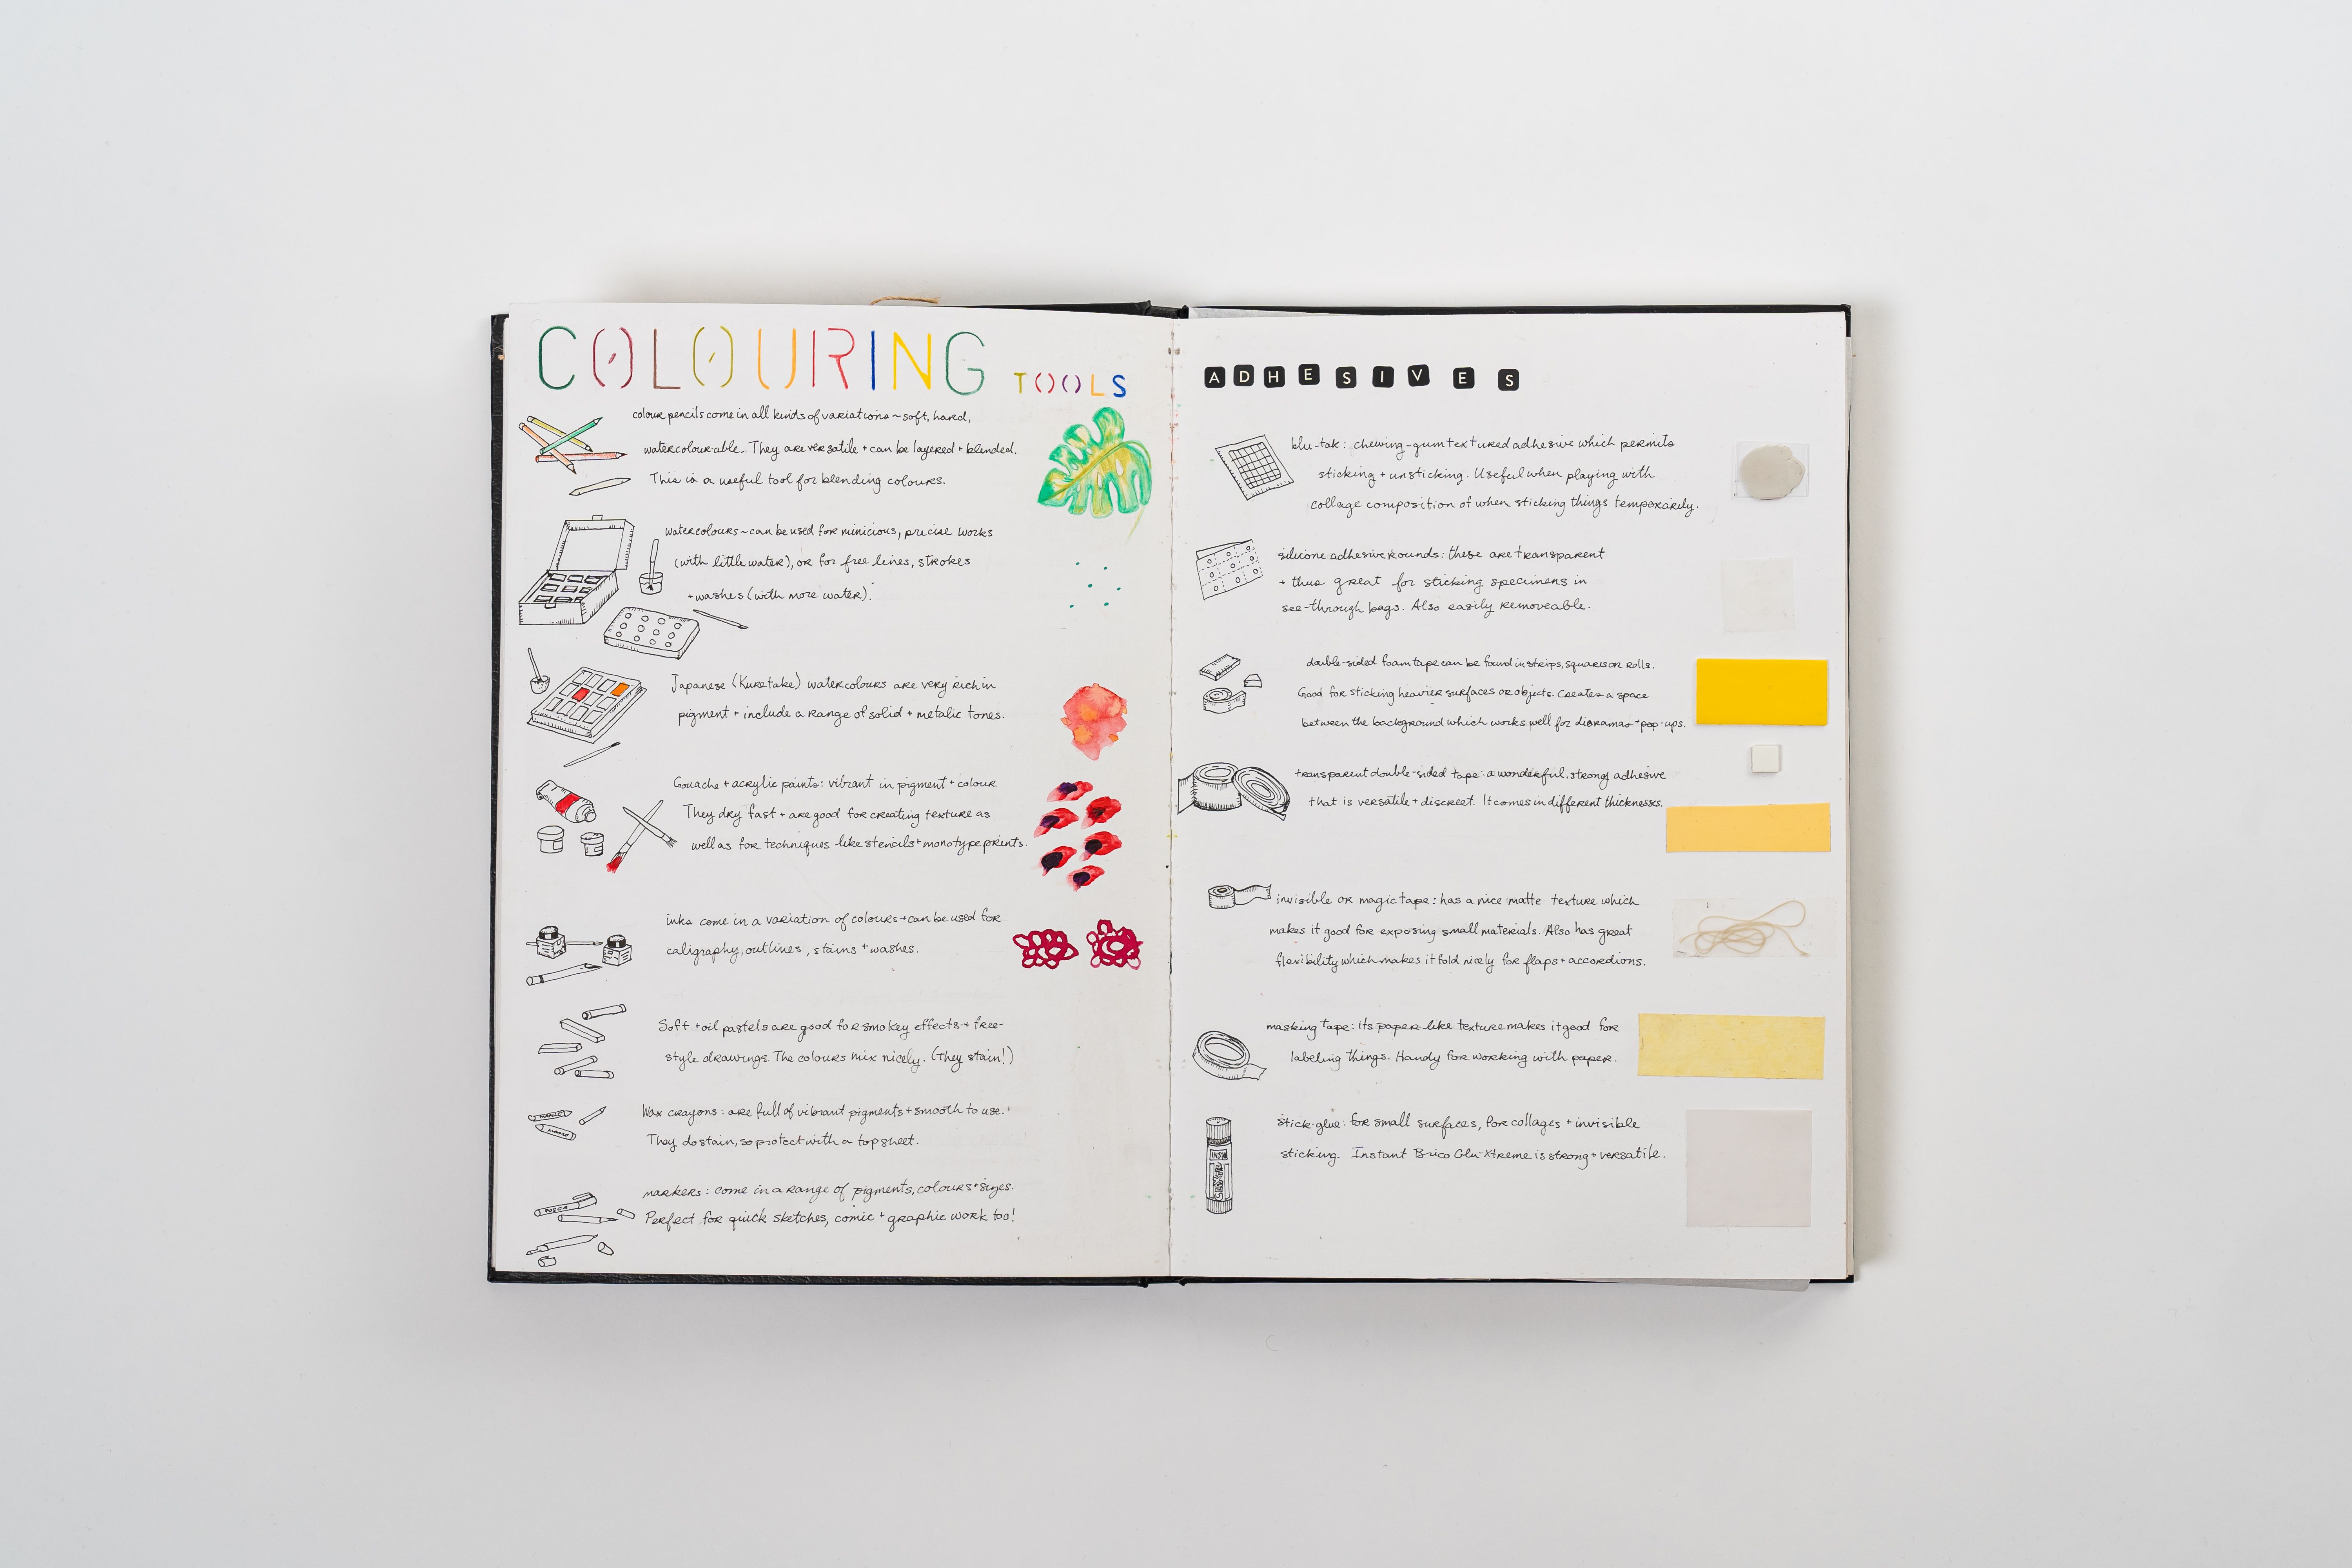 COLOURING TOOLS
colour pencils come in all kinds of variations ~ soft, hard,
watercolour-able. They are versatile + can be layered + blended.
This is a useful tool for blending colours.
watercolours ~ can be used for minicious, precise works
(with little water), or for free lines, strokes
+ washes (with more water).
Japanese (Kuretake) watercolours are very rich in
pigment + include a range of solid + metalic tones.
Gouache + acrylic paints: vibrant in pigment + colour
They dry fast + are good for creating texture as
well as for techniques like stencils + monotype prints.
inks come in a variation of colours + can be used for
caligraphy, outlines, stains + washes.
Soft + oil pastels are good for smokey effects + free-
style drawings. The colours mix nicely. (They stain!)
Wax crayons: are full of vibrant pigments + smooth to use.
They do stain, so protect with a top sheet.
markers: come in a range of pigments, colours + sizes.
Perfect for quick sketches, comic + graphic work too!
POSCA
ADHESIVES
blu-tak: chewing-gum textured adhesive which permits
sticking + unsticking. Useful when playing with
collage composition of when sticking things temporarily.
silicone adhesive rounds: these are transparent
+ thus great for sticking specimens in
see-through bags. Also easily removeable.
double-sided foam tape can be found in strips, squares or rolls.
Good for sticking heavier surfaces or objects. Creates a space
between the background which works well for dioramas + pop-ups.
transparent double-sided tape: a wonderful, strong adhesive
that is versatile + discreet. It comes in different thicknesses.
invisible or magic tape: has a nice matte texture which
makes it good for exposing small materials. Also has great
flexibility which makes it fold nicely for flaps + accordions.
masking tape: Its paper-like texture makes it good for
labeling things. Handy for working with paper.
stick-glue: for small surfaces, for collages + invisible
sticking. Instant Brico Glu-Xtreme is strong + versatile.